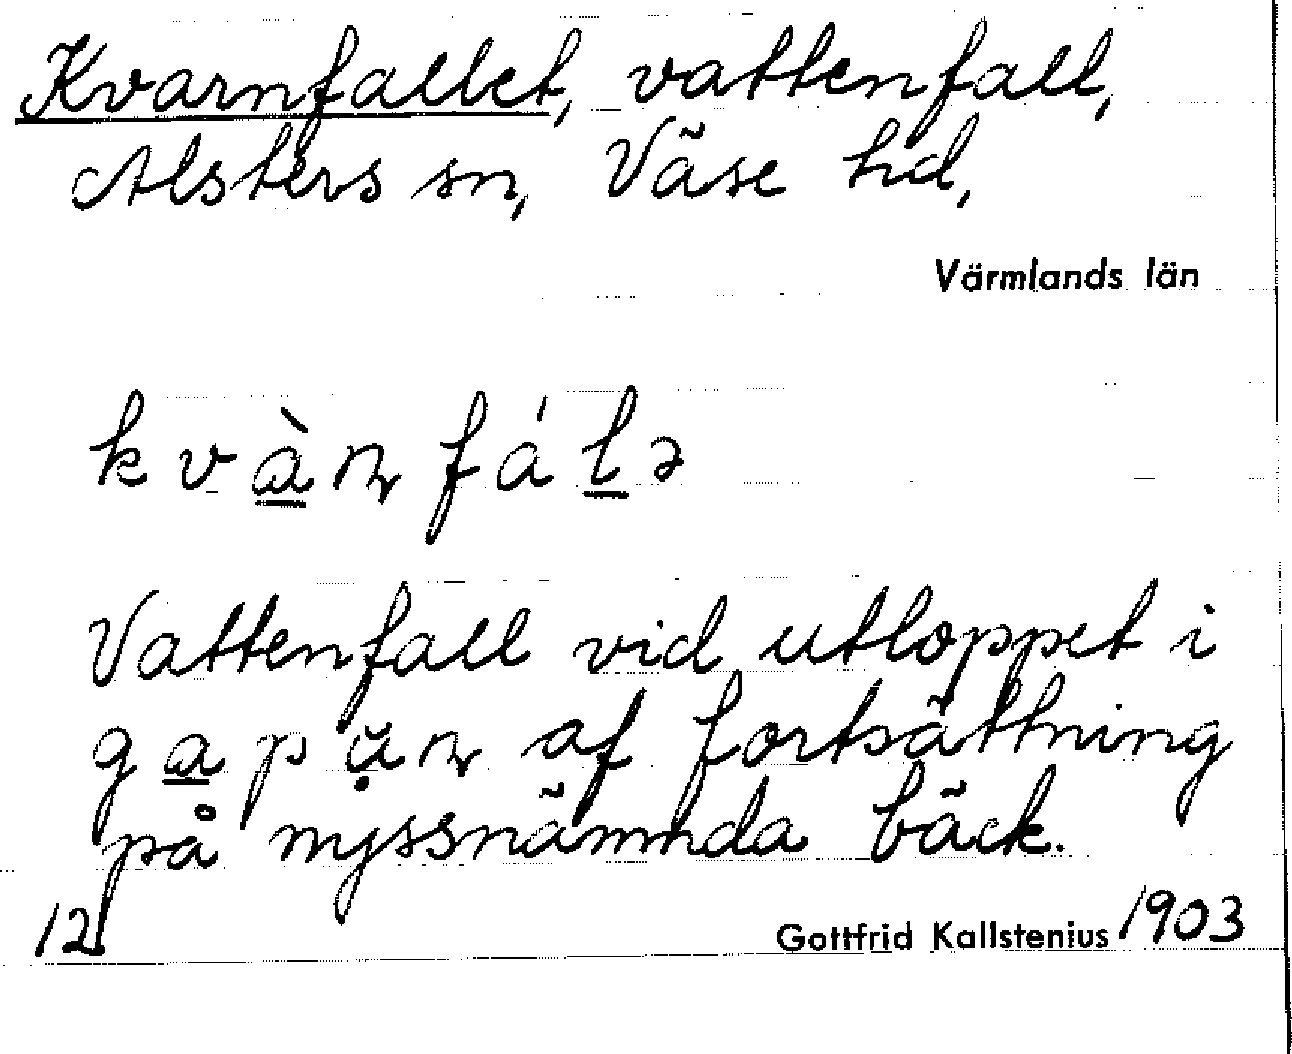 Kvarnfallet, vattenfall,
Alsters sn, Väse hd,
Värmlands län
kvàɳfálə
Vattenfall vid utloppet i
gapụ̆ɳ af fortsättning
på nyssnämnda bäck.
12
Gottfrid Kallstenius 1903